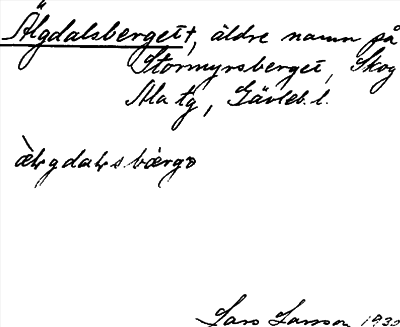 Älgdalsberget†, äldre namn på
Stormyrsberget, Skog
Ala tg, Gävleb. l.
Lars Larsson 1930